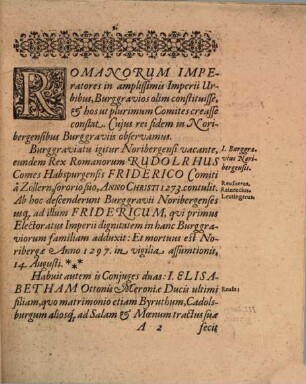 ROMANORUM IMPE-
ratores in amplissimis Imperii Ur-
bibus, Burggravios olim constituisse,
& hos ut plurimum Comites creasse
constat. Cujus rei fidem in Nori-
bergensibus Burggraviis observamus.
Burggraviatu igitur Noribergensi vacante,
eundem Rex Romanorum RUDOLRHUS
Comes Habspurgensis FRIDERICO Comiti
à Zollern, sororio suo, ANNO CHRISTI 1273. contulit.
Ab hoc descenderunt Burggravii Noribergenses
usq; ad illum FRIDERICUM, qui primus
Electoratus Imperii dignitatem in hanc Burggra-
viorum familiam adduxit: Et mortuus est No-
ribergæ Anno 1297. in vigilia assumtionis,
14. Augusti. **
Habuit autem is Conjuges duas: I. ELISA-
BETHAM Ottonis Meroniæ Ducis ultimi
filiam, quo matrimonio etiam Byruthum, Cadols-
burgum aliosq; ad Salam & Mœnum tractus suæ
A 2 fecit
1. Burggra-
vius Nori-
bergensis.
Reusnerus,
Leutingerus.
Reusn: